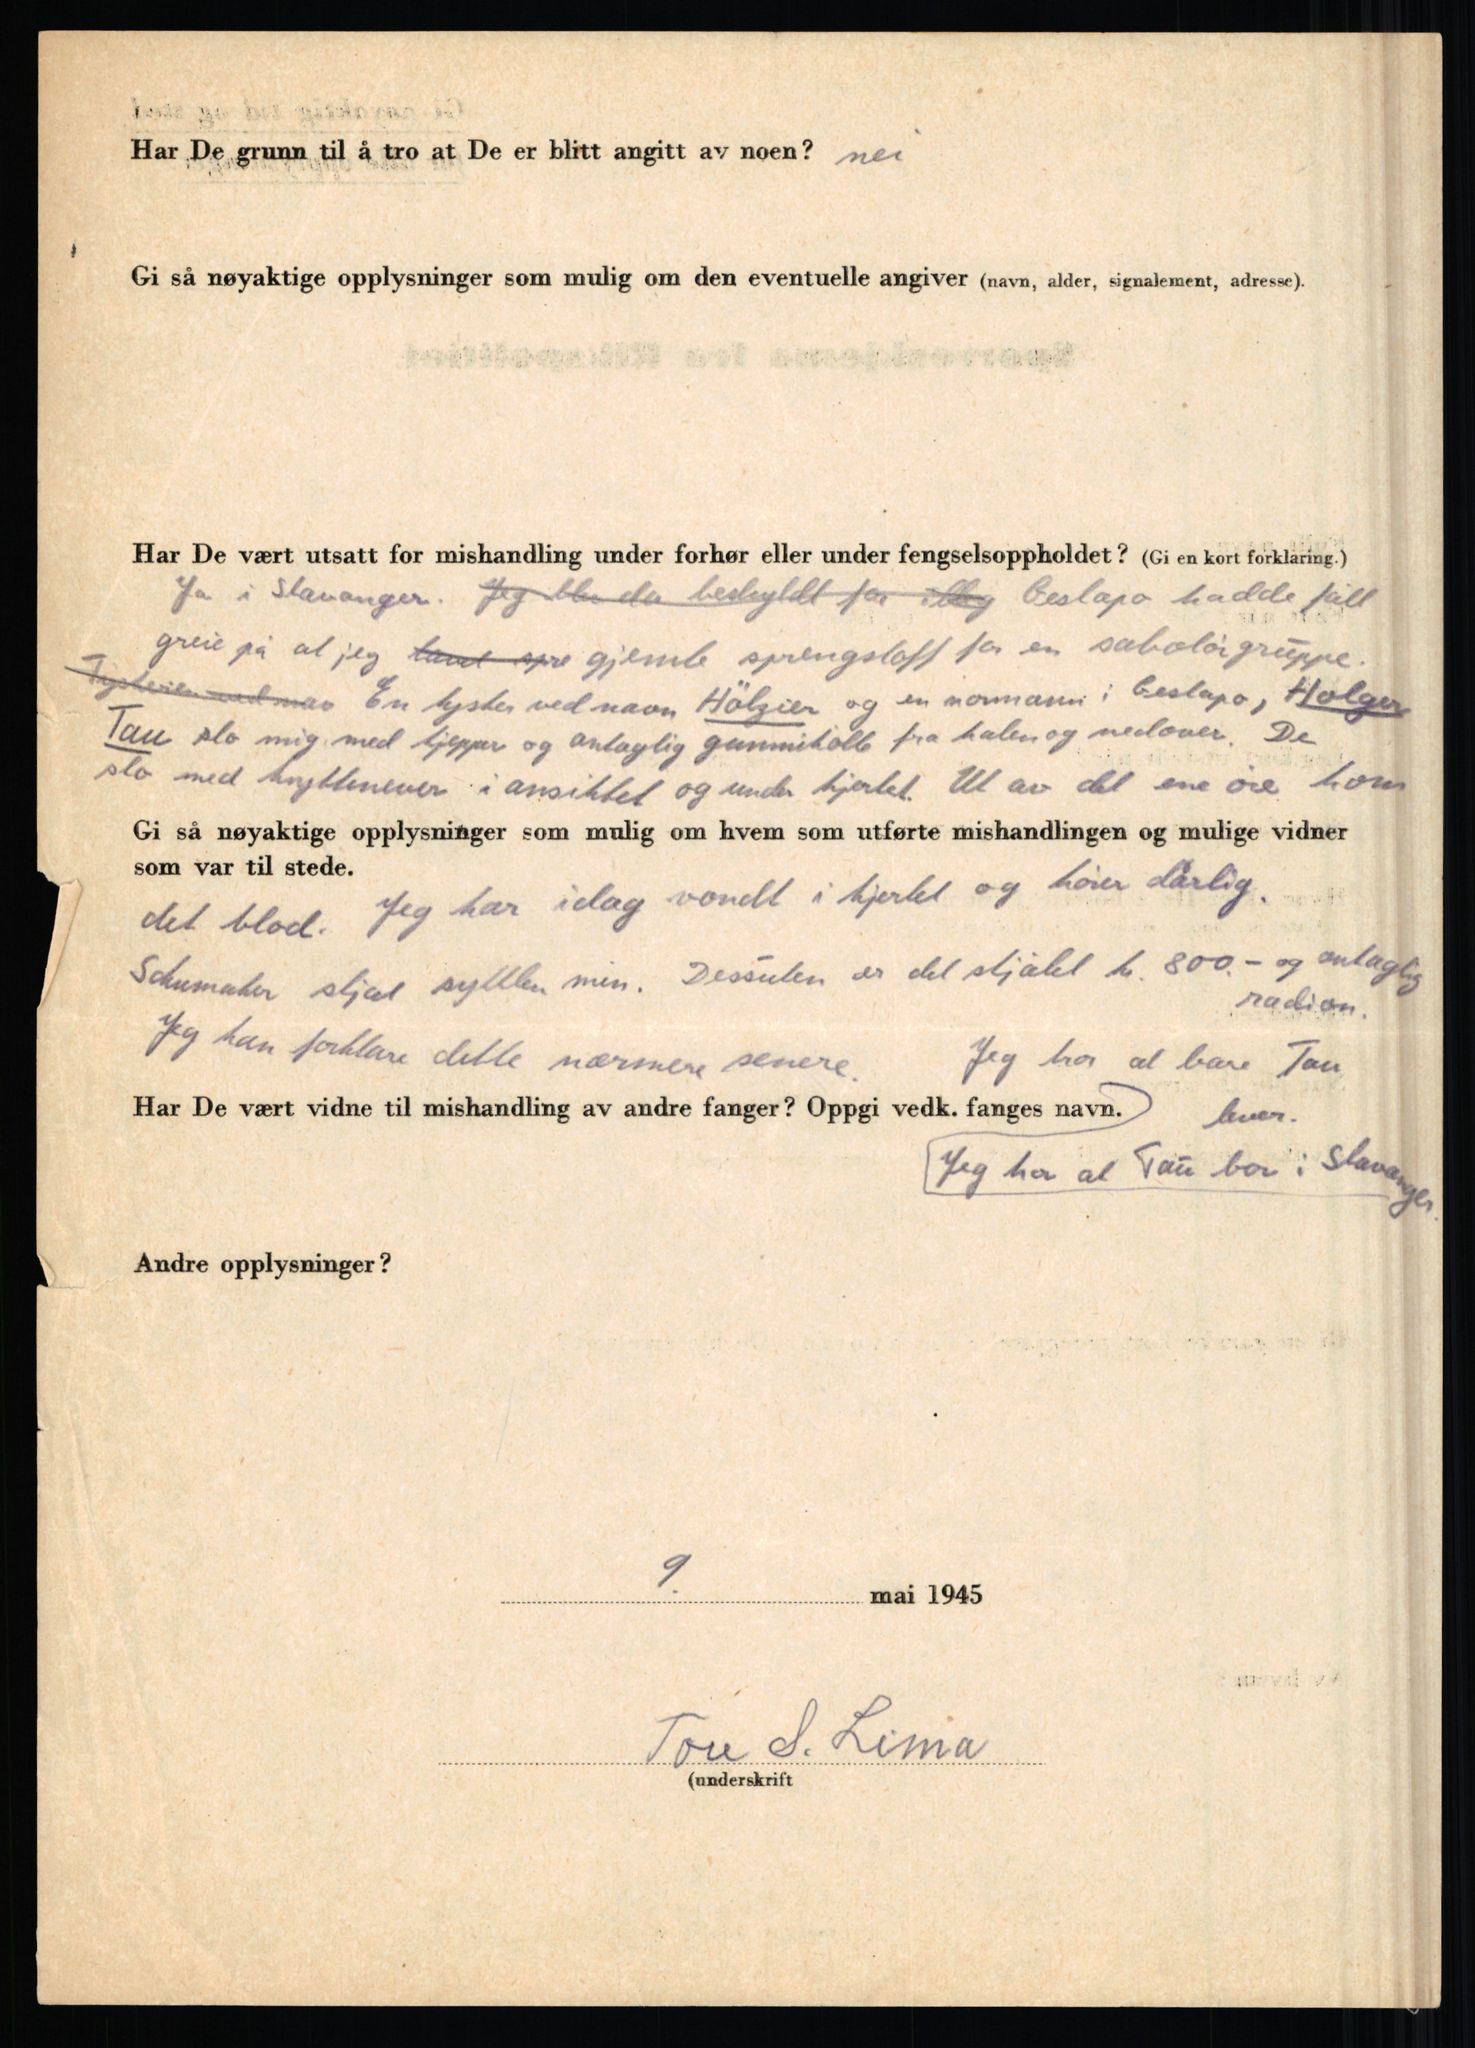 Har De grunn til å tro at De er blitt angitt av noen? nei
Gi så nøyaktige opplysninger som mulig om den eventuelle angiver (navn, alder, signalement, adresse).
Har De vært utsatt for mishandling under forhør eller under fengselsoppholdet? (Gi en kort forklaring.)
Ja i Stavanger. Jeg ble da beskyldt for Gestapo hadde fått
greie på at jeg gjemte sprengstoff for en sabotørgruppe.
Tyskeren ved nav En tysker ved navn Hölzier og en normann i Gestapo, Holger
Tau slo mig med kjepper og antaglig gummikølle fra halen og nedover. De
slo med knyttnever i ansiktet og under hjertet. Ut av det ene øre kom
Gi så nøyaktige opplysninger som mulig om hvem som utførte mishandlingen og mulige vidner
som var til stede.
det blod. Jeg har idag vondt i hjertet og hører dårlig.
Schumaker stjal min. Dessuten er det stjålet kr. 800.- og antaglig
radioen.
Jeg kan forklare dette nærmere senere. Jeg tror at bare Tau
Har De vært vidne til mishandling av andre fanger? Oppgi vedk. fanges navn. lever.
Jeg tror at Tau bor i Stavanger.
Andre opplysninger?
9. mai 1945
Tore S. Lima
(underskrift